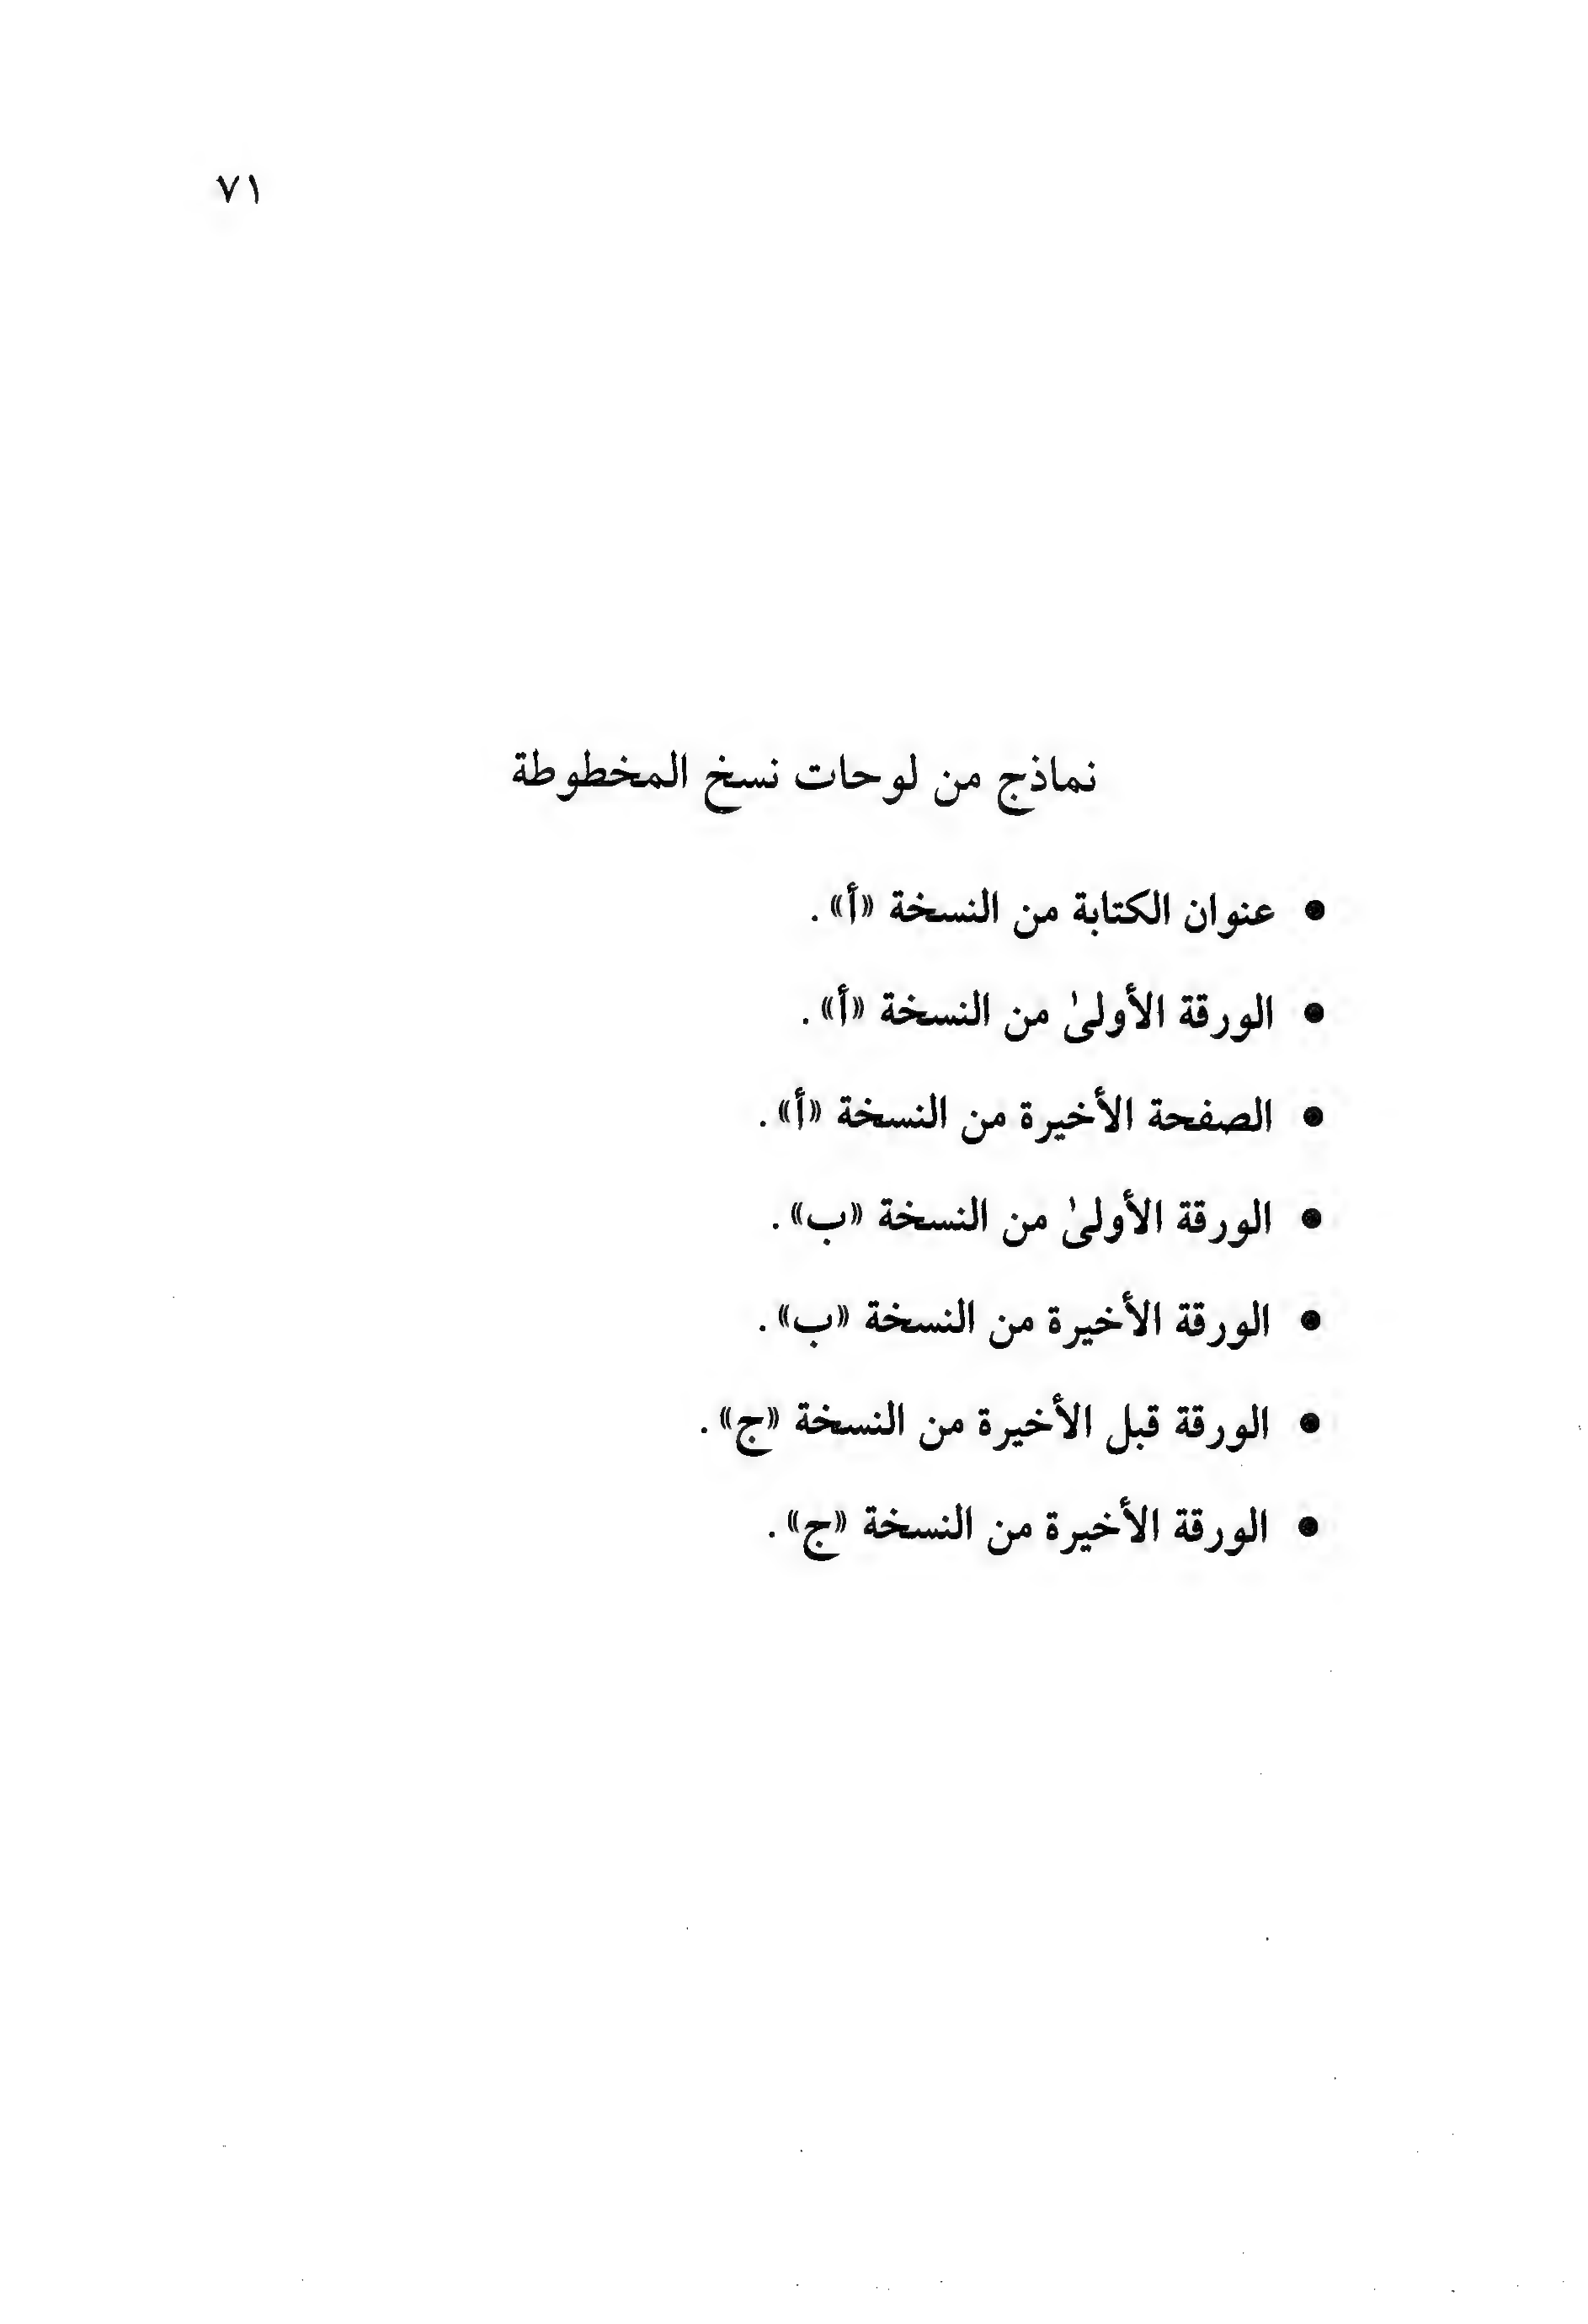 ٧١
نماذج من لوحات نسخ المخطوطة
• عنوان الكتابة من النسخة «أ» .
• الورقة الأولىٰ من النسخة «أ» .
• الصفحة الأخيرة من النسخة «أ» .
• الورقة الأولىٰ من النسخة «ب» .
• الورقة الأخيرة من النسخة «ب» .
• الورقة قبل الأخيرة من النسخة «ج» .
• الورقة الأخيرة من النسخة «ج» .